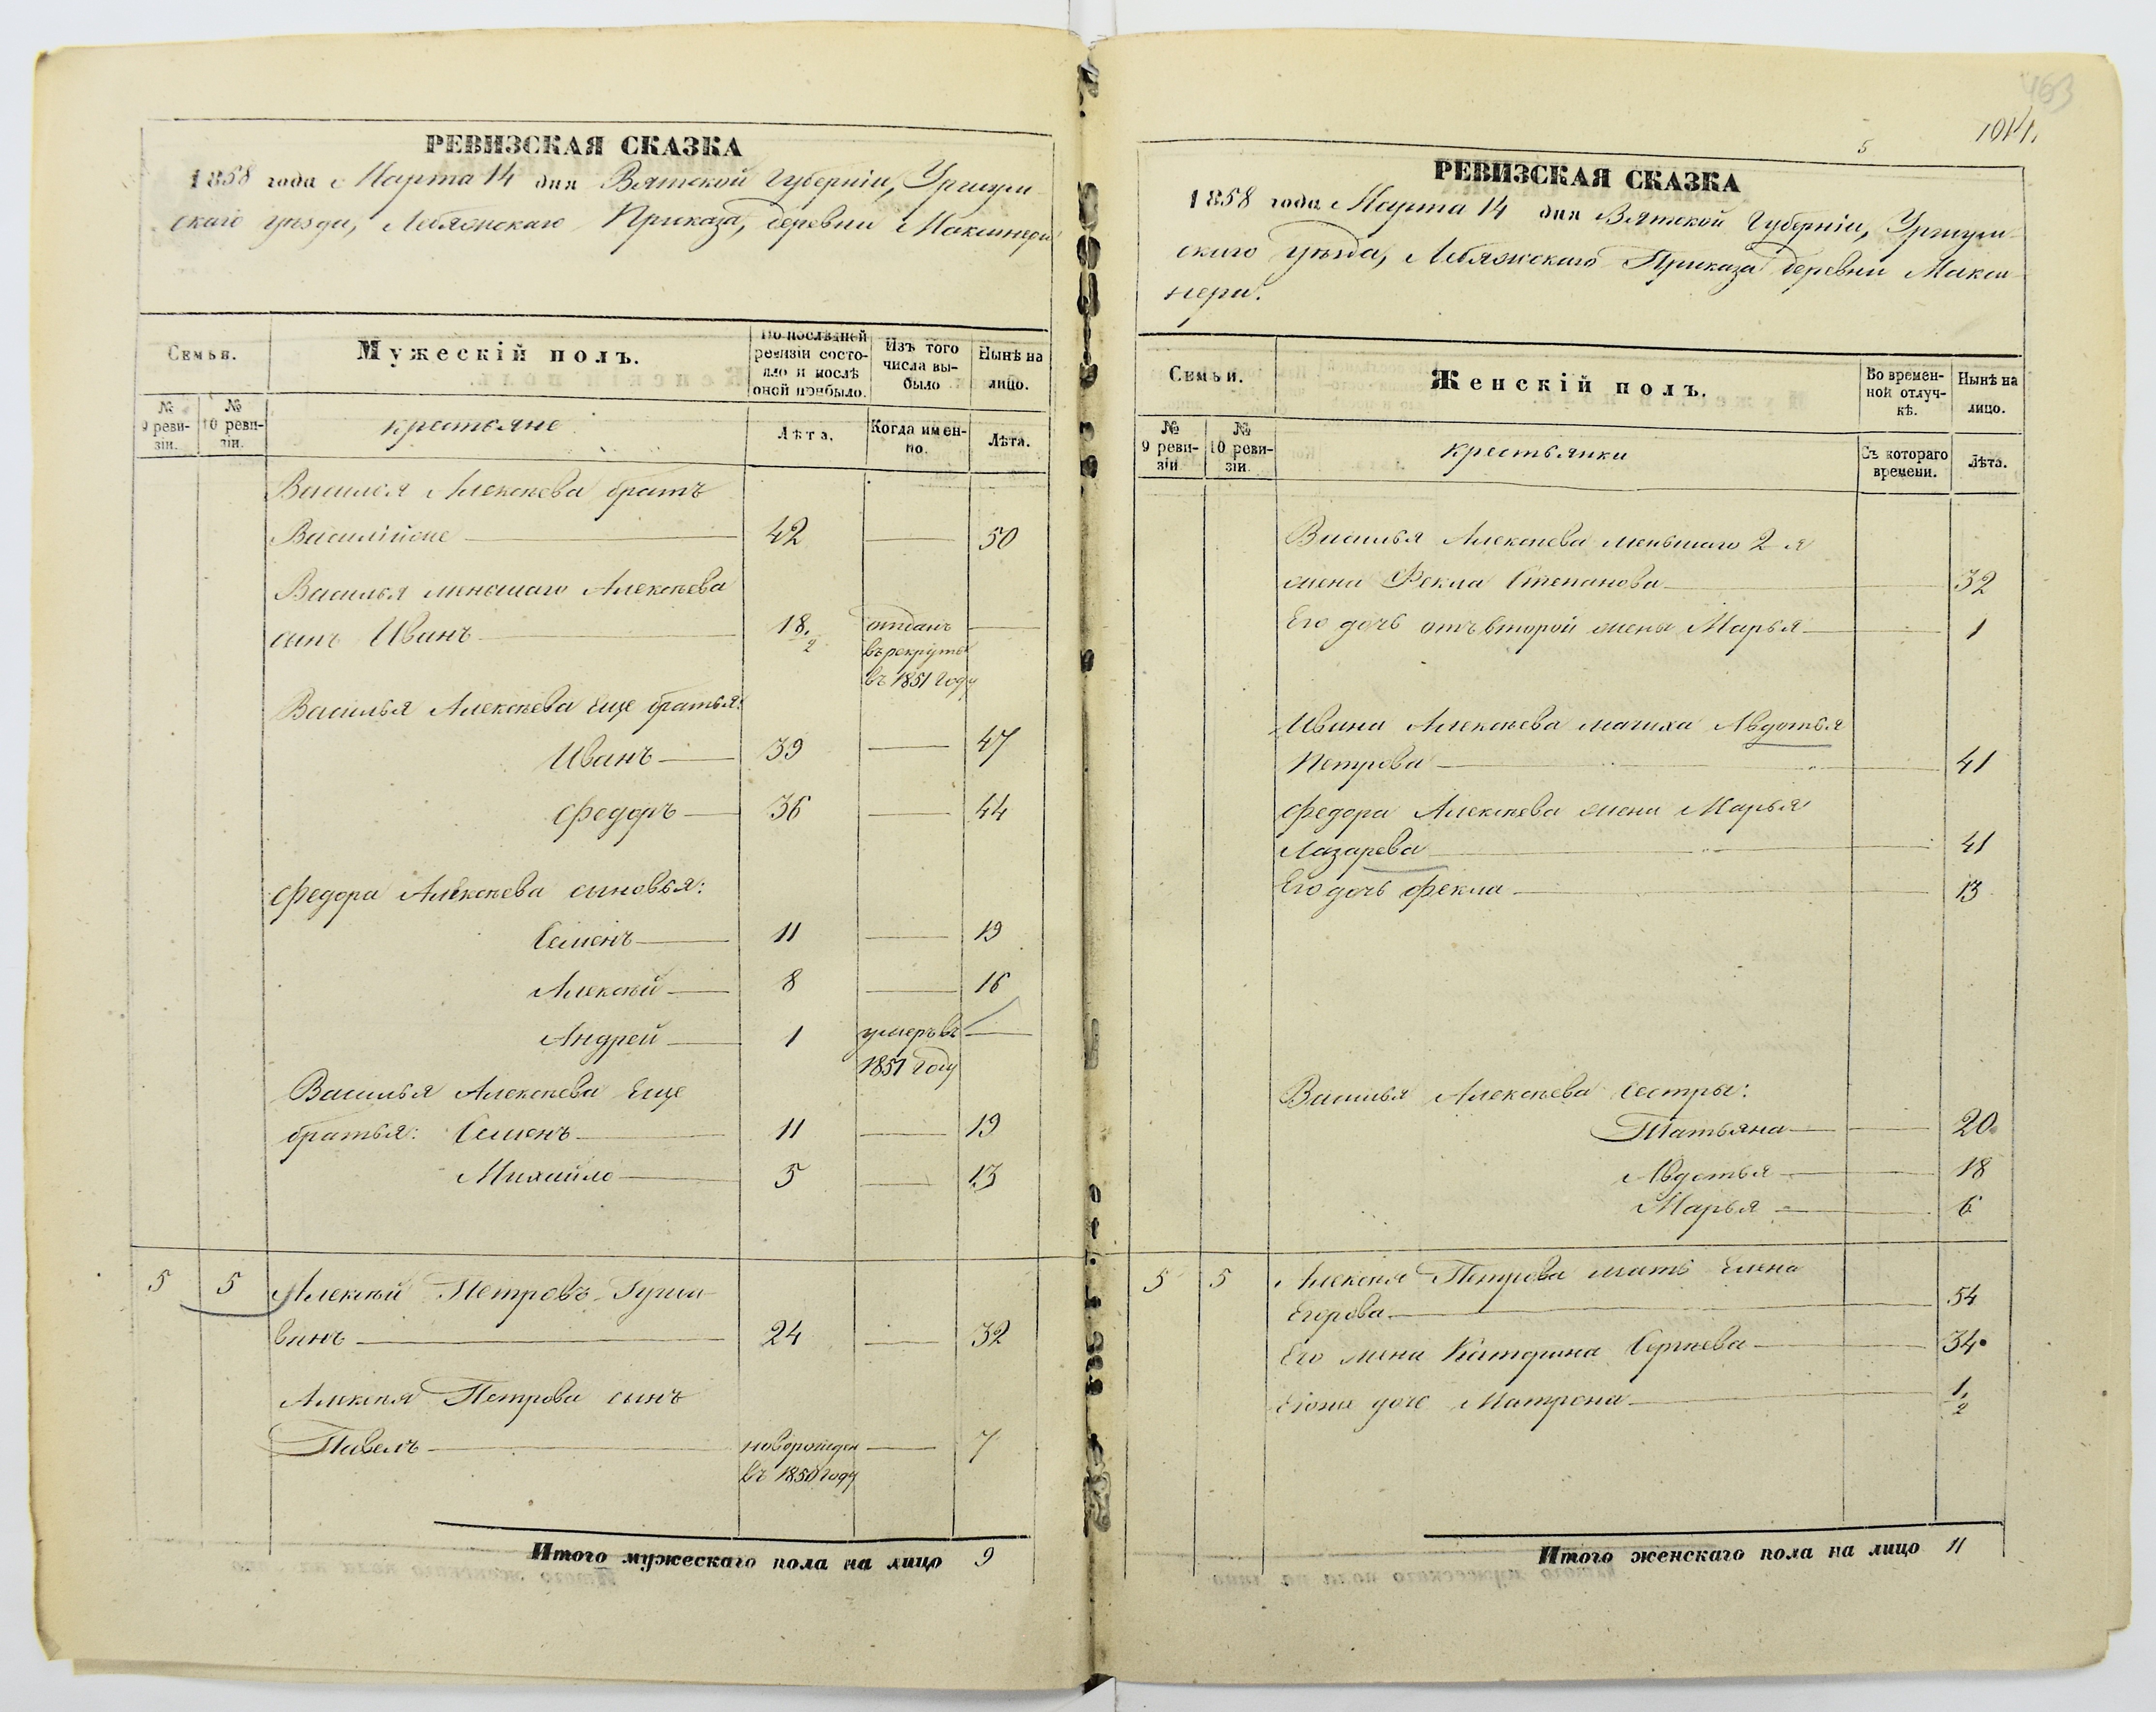 РЕВИЗСКАЯ СКАЗКА
1858 года Марта 14 дня Вятской Губерніи, Уржум-
скаго уѣзда, Лебяжскаго Приказа, деревни Максинери
Семьи.
Мужескій полъ.
По послѣдней ревизіи состояло и послѣ оной прибыло.
Изъ того числа выбыло
Нынѣ на лицо.
№ 9 ревизіи.
№ 10 ревизіи.
крестьяне
Лѣта.
Когда именно.
Лѣта.
Василья Алексѣева братъ
42 50
Василья меньшаго Алексѣева
сынъ Иванъ 18 1/2 отданъ
въ рекруты
въ 1851 году
Василья Алексѣева еще братья:
Иванъ 39 47
Федоръ 36 44
Федора Алексѣева сыновья:
Семенъ 11 19
Алексѣй 8 16
Андрей 1 умеръ въ
1851 году
Василья Алексѣева еще
братья: Семенъ 11 19
Михайло 5 13
5 5 Алексѣй Петровъ
винъ 24 32
Алексѣя Петрова сынъ
Павелъ новорожден 7
въ 1850 году
Итого мужескаго пола на лицо 9
463
1014.
5
РЕВИЗСКАЯ СКАЗКА
1858 года Марта 14 дня Вятской Губерніи, Уржум-
скаго уѣзда, Лебяжскаго Приказа деревни Макси-
нери.
Семьи.
Женскій полъ.
Во временной отлучкѣ.
Нынѣ на лицо.
№ 9 ревизіи
№ 10 ревизіи.
крестьянки
Съ котораго времени.
Лѣта.
Василья Алексѣева меньшаго 2-я
жена Фекла Степанова 32
Его дочь отъ второй жены Марья 1
Ивана Алексѣева мачиха Авдотья
Петрова 41
Федора Алексѣева жена Марья
Лазарева 41
Его дочь Фекла 13
Василья Алексѣева сестры:
Татьяна 20
Авдотья 18
Марья 6
5 5 Алексѣя Петрова мать Елена
Егорова 54
Его жена Катерина Сергѣева 34
Егоже дочь Матрена 1/2
Итого женскаго пола на лицо 11